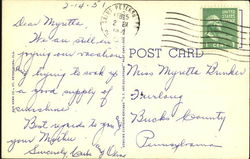 2-14-51
Dear Myrtta:
We are still en-
joying our vacation
by trying to soak up
a good supply of
sunshine.
Best regards to you &
your Mother.
Sincerely
POST CARD
Miss Myrtta Bunker
Furlong
Bucks County
Pennsylvania